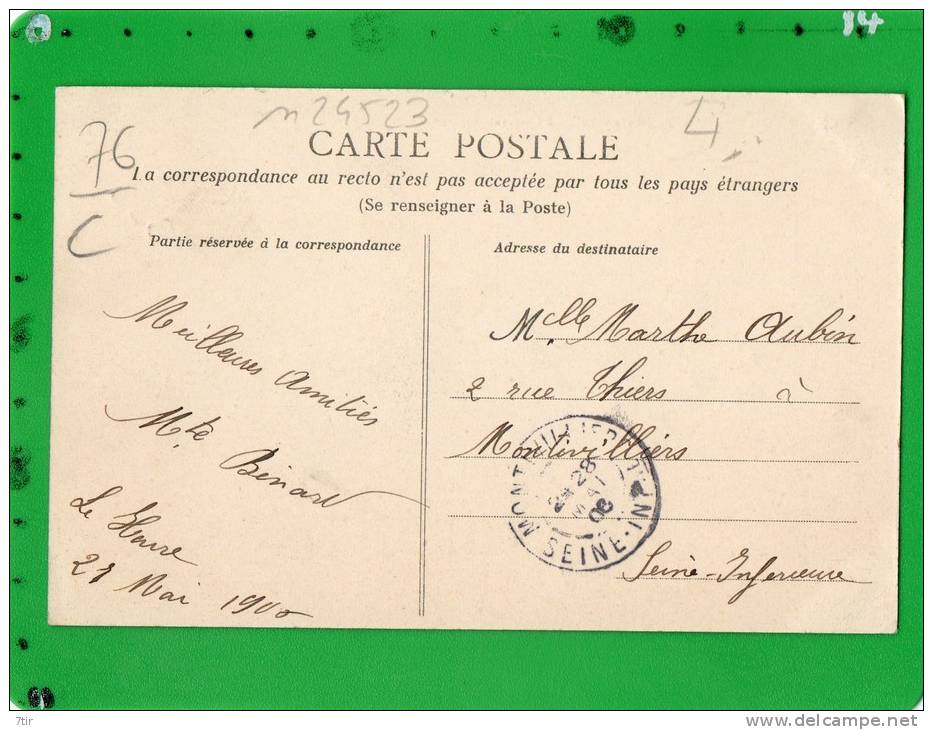 14
n 24523
4
76
C
CARTE POSTALE
La correspondance au recto n'est pas acceptée par tous les pays étrangers
(Se renseigner à la Poste)
Partie réservée à la correspondance
Meilleures Amitiés
Mte Bénard
Le Havre
27 Mai 1906
Adresse du destinataire
Melle Marthe Aubin
2 rue Thiers à
Montivilliers
Seine-Inferieure
MONTIVILLIERS
28
MAI
06
SEINE-INFRE
7tir
www.delcampe.net